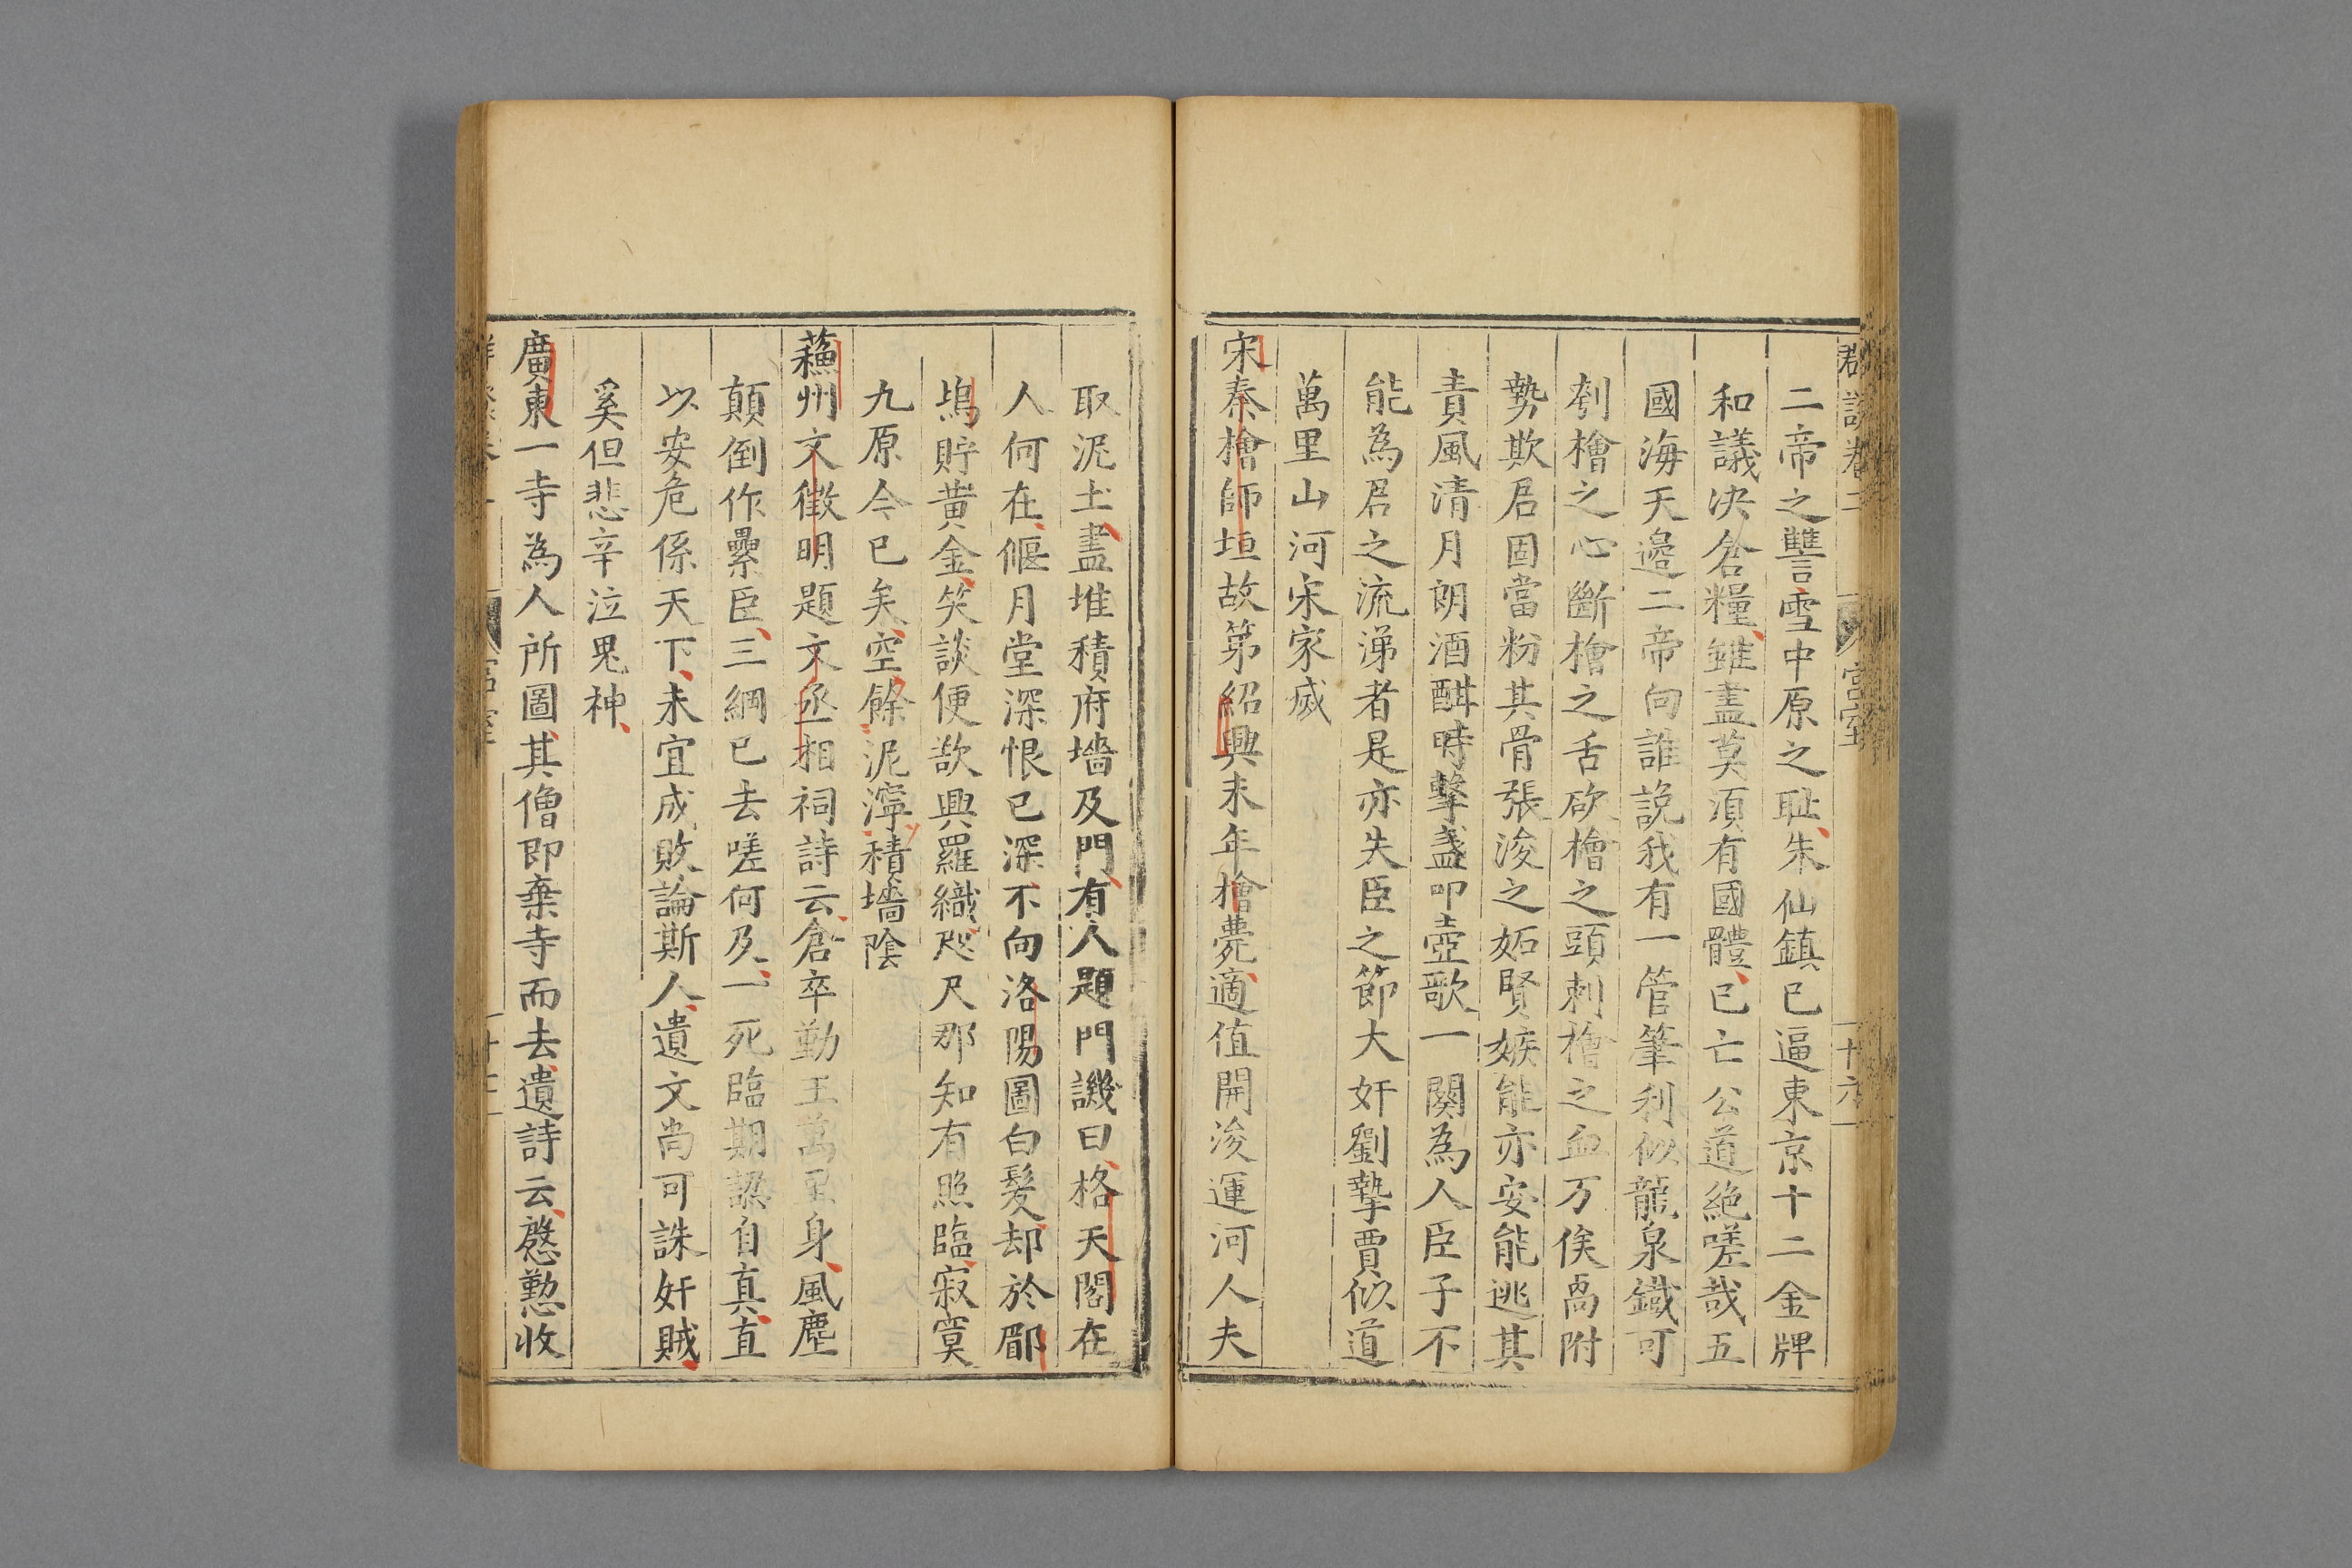 二帝之讐雪中原之耻朱仙鎮已逼東京十二金牌
和議决倉糧雖盡莫湏有國體已亡公道絶嗟哉五
國海天邉二帝向誰說我有一管筆利似龍泉鐵可
刳檜之心斷檜之舌砍檜之頭刺檜之血万俟卨附
勢欺君固當粉其骨張浚之妬賢嫉能亦安能逃其
責風清月朗酒酣時擊盞叩壺歌一闋為人臣子不
能為君之流涕者是亦失臣之節大奸劉摯賈似道
萬里山河宋家烕
宋秦檜師垣故第紹興末年檜薨適值開浚運河人夫
取泥土盡堆積府墻及門有人題門譏曰格天閣在
人何在偃月堂深恨已深不向洛陽圖白髪却於郿
塢貯黄金笑談便欲興羅織咫尺那知有照臨寂寞
九原今已矣空餘泥濘積墻陰
蘓州文徴明題文丞相祠詩云倉卒勤王萬里身風塵
顛倒作纍臣三綱已去嗟何及一死臨期認自真直
以安危係天下未宜成敗論斯人遺文尚可誅奸賊
奚但悲辛泣鬼神
廣東一寺為人所圖其僧即棄寺而去遺詩云慇懃收